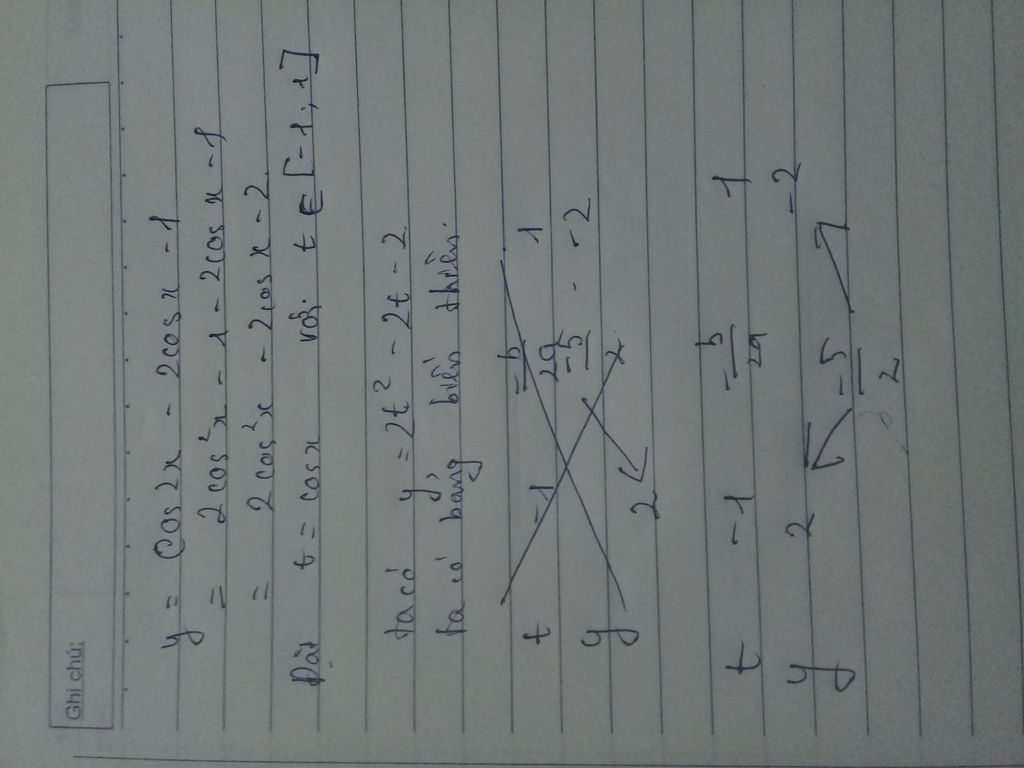 Ghi chú:
y = cos 2x - 2cos x - 1
= 2 cos²x - 1 - 2cos x - 1
= 2 cos²x - 2cos x - 2
Đặt t = cos x với t ∈ [-1; 1]
ta có y = 2t² - 2t - 2
ta có bảng biến thiên.
t -1 -b/2a 1
y 2 -5/2 -2
t -1 -b/2a 1
y 2 -5/2 -2